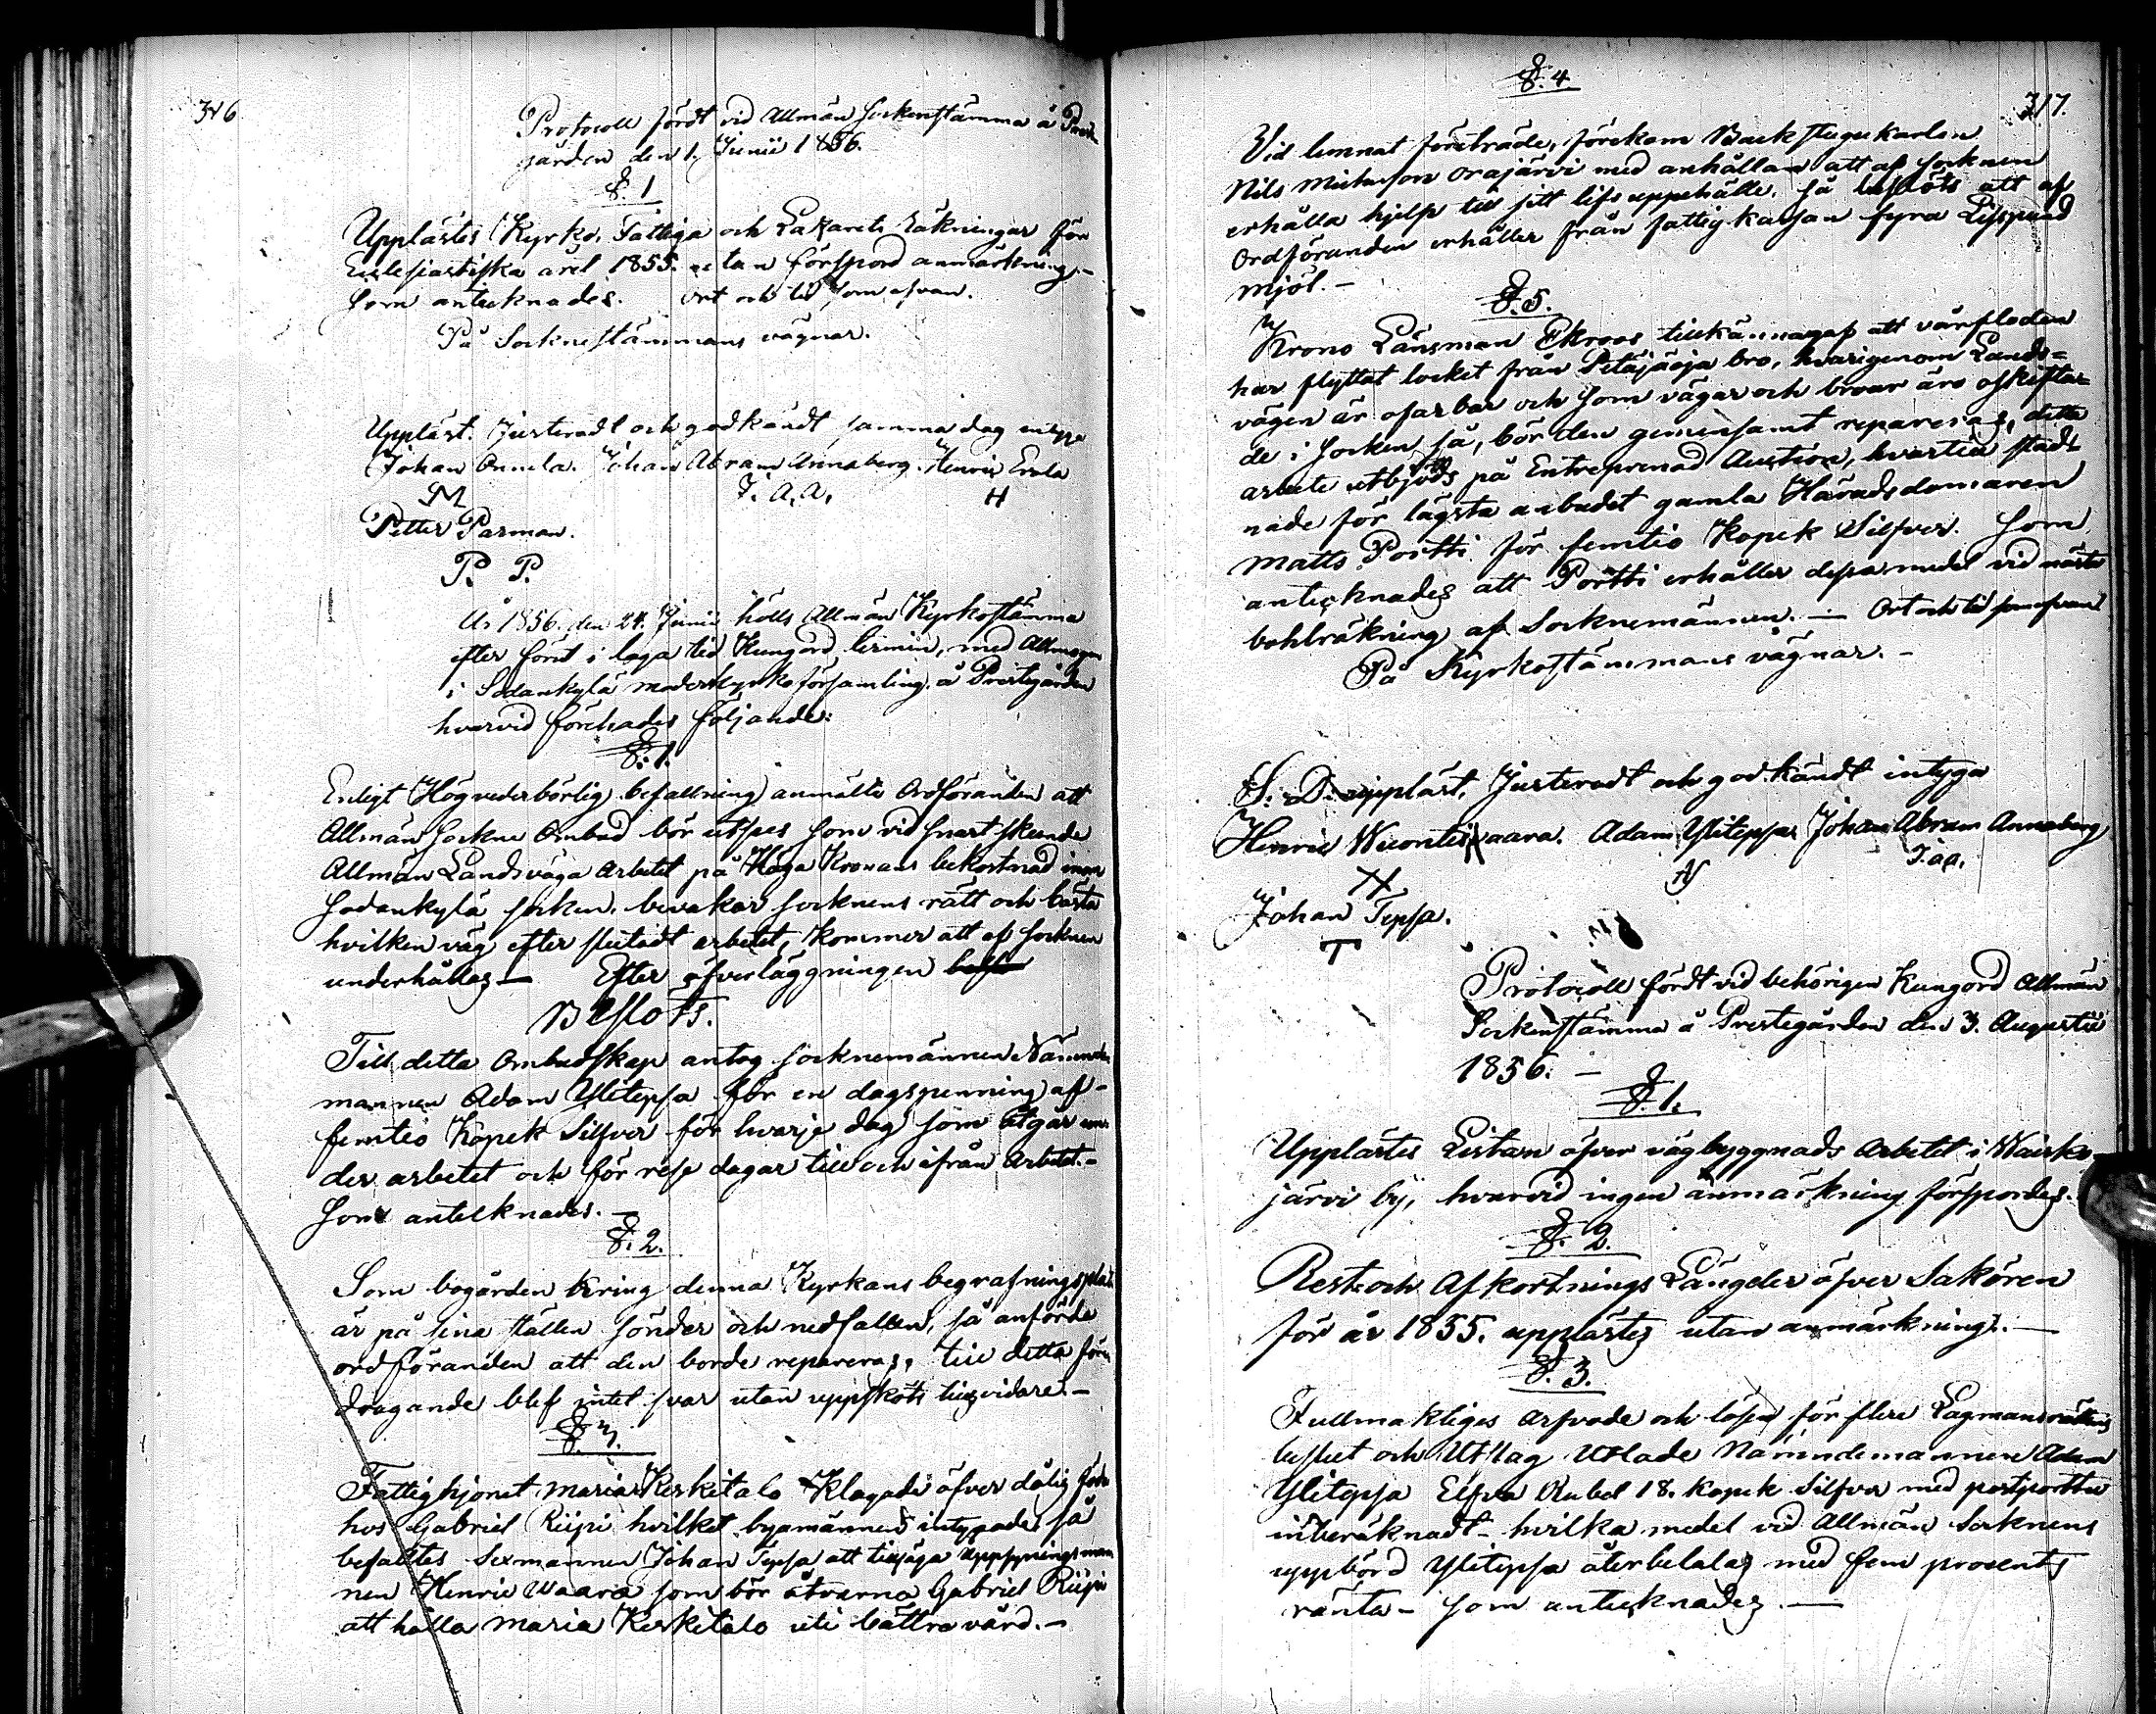 316
Protocoll fördt vid Allmän Sockenstämma å Prest
gården den 1. Junii 1856.
§. 1
Upplästes Kyrko, Fattiga och Lazarets Räkningar för
Ecclesiastiska året 1855. utan förspord anmärkning.-
Som antecknades. Ort och tid som ofvan.
På Socknestämmans vägnar.
Uppläst. Justeradt och godkändt samma dag intyga
Johan Onnela. Johan Abram Annaberg. Henric Erola
M J. A. A. H
Petter Parman.
P. P.
År 1856. den 24. Junii hölls Allmän Kyrkostämma
efter förut i laga tid Kungörd termin, med Allmogen
i Sodankylä moderkyrko församling. å Prestgården
hvarvid förehades följande:
§. 1.
Enligt Högvederbörlig befallning anmälte Ordföranden att
Allmän Sockne Ombud bör utses som vid snart skeende
Allmän Landsväga Arbetet på Höga Kronans bekostnad inom
Sodankylä socken. bevakar socknens rätt och bästa
hvilken väg efter slutadt arbetet, kommer att af Socknen
underhållas — Efter öfverläggningen
Beslöts.
Till detta Ombudskap antog socknemännen Nämnde
mannen Adam Ylitepsa för en dagspenning af-
femtio Kopek Silfver för hvarje dag som åtgår un-
der arbetet och för resp dagar till och ifrån Arbetet.-
Som antecknades. —
§. 2.
Som bogården kring denna Kyrkans begrafningsplats
är på sina ställen sönder och nedfallen, så anförde
ordföranden att den borde repareras, till detta före
dragande blef intet svar utan uppsköts till vidare.-
§. 3.
Fattighjonet Maria Kerkitalo klagade öfver dålig föda
hos Gabriel Riipi hvilket byamännen intygade så
befalltes Sexmannen Johan Tepsa att tillsäga uppsyningsman
nen Henric Waara som bör åtvarna Gabriel Riipi
att hålla Maria Kerkitalo uti bättre vård.-
§. 4.
317.
Vid lemnat företräde, förekom Backstugukarlen
Nils Michelson Orajärvi med anhållan att af Socknen
erhålla hjelp till sitt lifs uppehälle. så beslöts att af
Ordföranden erhåller från fattig kassan fyra Lispund
mjöl.-
§. 5.
Krono Länsman Ekroos tillkännagaf att vårfloden
har flyttat locket från Petäjäoja bro, hvarigenom Lands=
vägen är ofarbar och som vägar och broar äro oskiftad=
de i Socken så, bör den gemensamt repareras, detta
arbete utbjöds på Entreprenad Auction, hvartill stad-
nade för lägsta anbudet gamla Häradsdomaren
Matts Portti för femtio Kopek Silfver. Som
antecknades att Portti erhåller dessa medel vid nästa
bohlräkning af Socknemännen. — Ort och tid som ofvan
På Kyrkostämmans vägnar.-
S. D. uppläst, Justeradt och godkändt intyga
Henric Wuontisvaara. Adam Ylitepsa Johan Abram Annaberg
J. a a.
Johan Tepsa.
T
Protocoll fördt vid behörigen Kungörd Allmän
Sockenstämma å Prestegården den 3. Augustii
1856. —
§. 1.
Upplästes Listan öfver vägbyggnads Arbetet i Waisko
järvi by, hvarvid ingen anmärkning förspordes.
§. 2.
Rest- och Afkortnings Längder öfver Saköron
för år 1855. upplästes utan anmärkning. —
§. 3.
Fullmäktiges Arfvode och lösen för flere Lagmansrättens
beslut och Utslag utlade Nämndemannen Adam
Ylitepsa Elfva Rubel 18. kopek Silfver med postportto
inberäknadt - hvilka medel vid Allmän Socknens
uppbörd Ylitepsa återbetalas med fem procents
ränta - Som antecknades. —